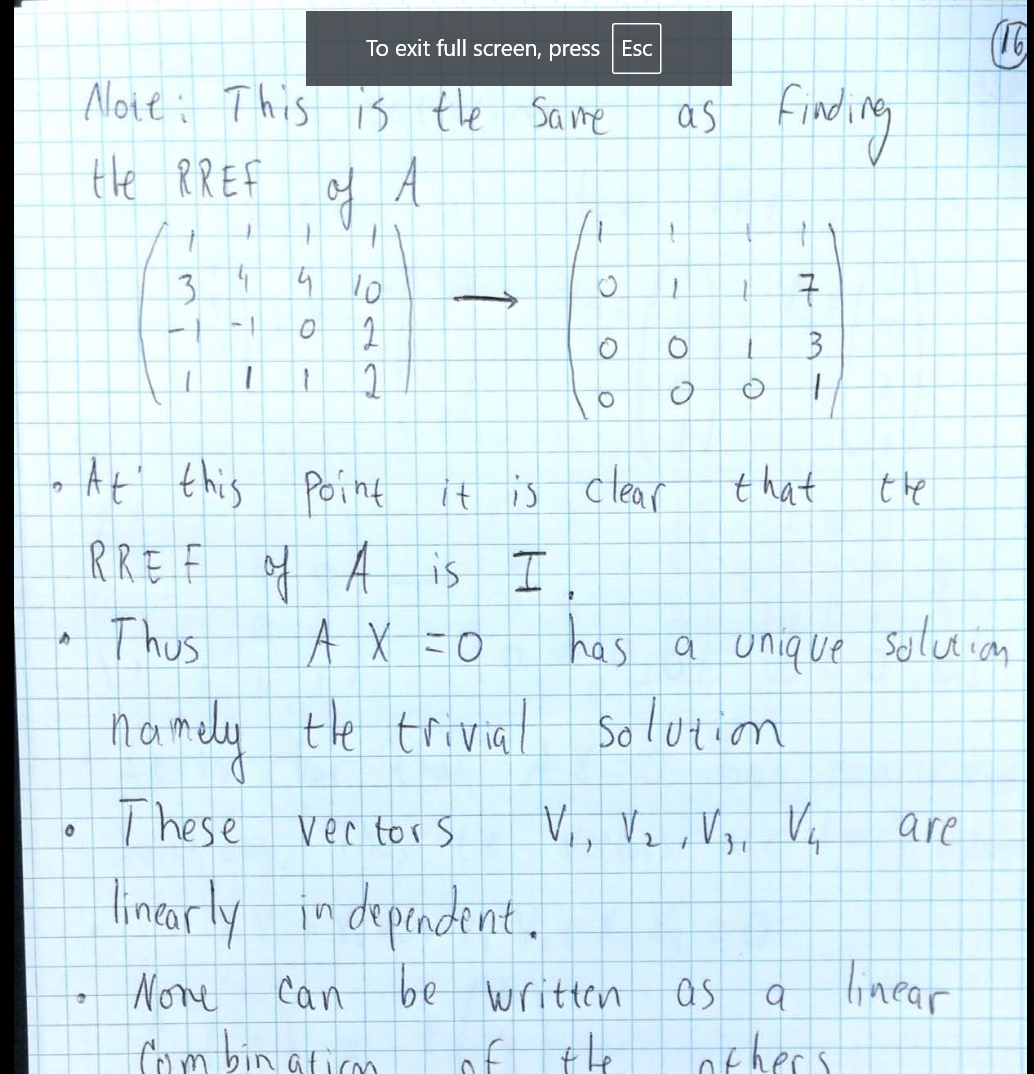 To exit full screen, press Esc
16
Note: This is the same as finding
the RREF of A
1 1 1 1      1 1 1 1
3 4 4 10 → 0 1 1 7
-1 -1 0 2      0 0 1 3
1 1 1 2      0 0 0 1
• At this point it is clear that the
RREF of A is I.
• Thus AX = 0 has a unique solution
namely the trivial solution
• These vectors V₁, V₂, V₃, V₄ are
linearly independent.
• None can be written as a linear
Combination of the others